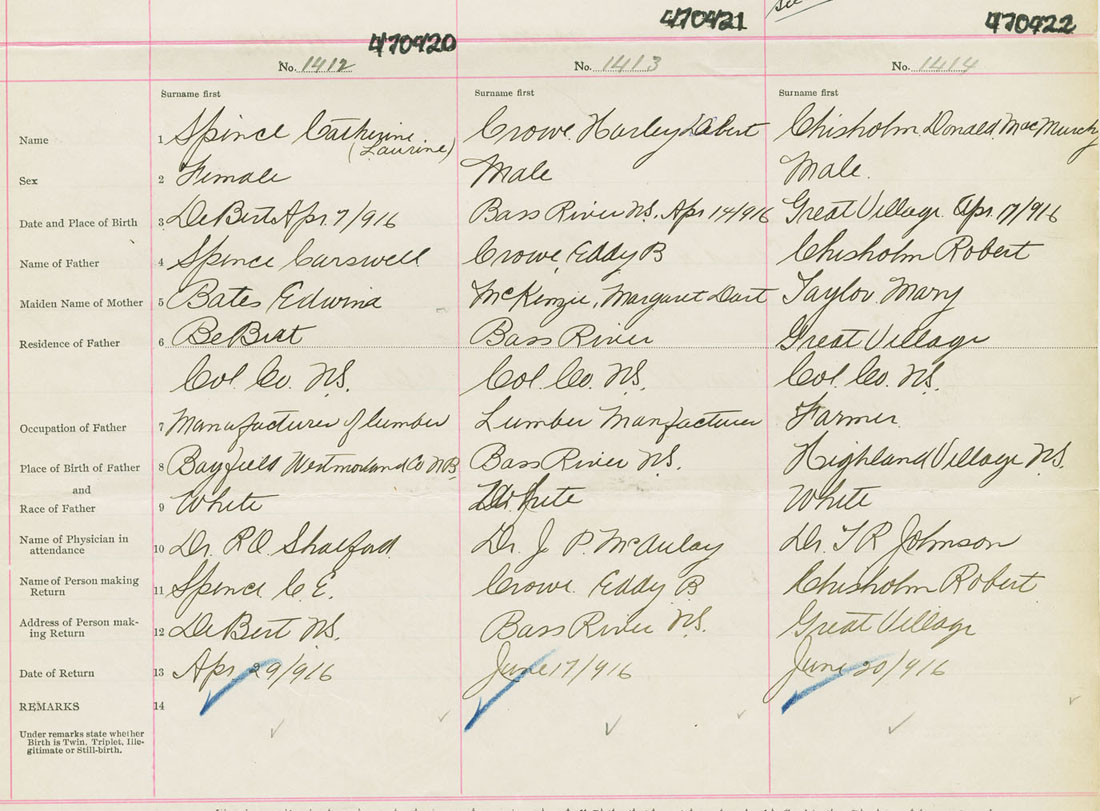 470420 470421 470422
No. 1412 No. 1413 No. 1414
Surname first Surname first Surname first
Name 1 Spence Catherine Crowe Harley Chisholm Donald MacMurchy
(Laurine)
Sex 2 Female Male Male.
Date and Place of Birth 3 DeBert Apr. 7/916 Bass River N.S. Apr 14/916 Great Village Apr. 17/916
Name of Father 4 Spence Carswell Crowe, Eddy B Chisholm Robert
Maiden Name of Mother 5 Bates Edwina McKenzie, Margaret Dart Taylor Mary
Residence of Father 6 Bass River Great Village
Col. Co. N.S. Col. Co. N.S. Col. Co. N.S.
Occupation of Father 7 Manufacturer of lumber Lumber Manfacturer Farmer
Place of Birth of Father 8 Bayfield Westmorland Co N.B. Bass River N.S. Highland Village N.S.
and
Race of Father 9 White White White
Name of Physician in
attendance 10 Dr. R.O. Shatford Dr. J. P. McAulay Dr. T R Johnson
Name of Person making
Return 11 Spence C. E. Crowe Eddy B Chisholm Robert
Address of Person mak-
ing Return 12 DeBert N.S. Bass River N.S. Great Village
Date of Return 13 Apr. 29/916 June 17/916 June 20/916
REMARKS 14
Under remarks state whether
Birth is Twin, Triplet, Ille-
gitimate or Still-birth.